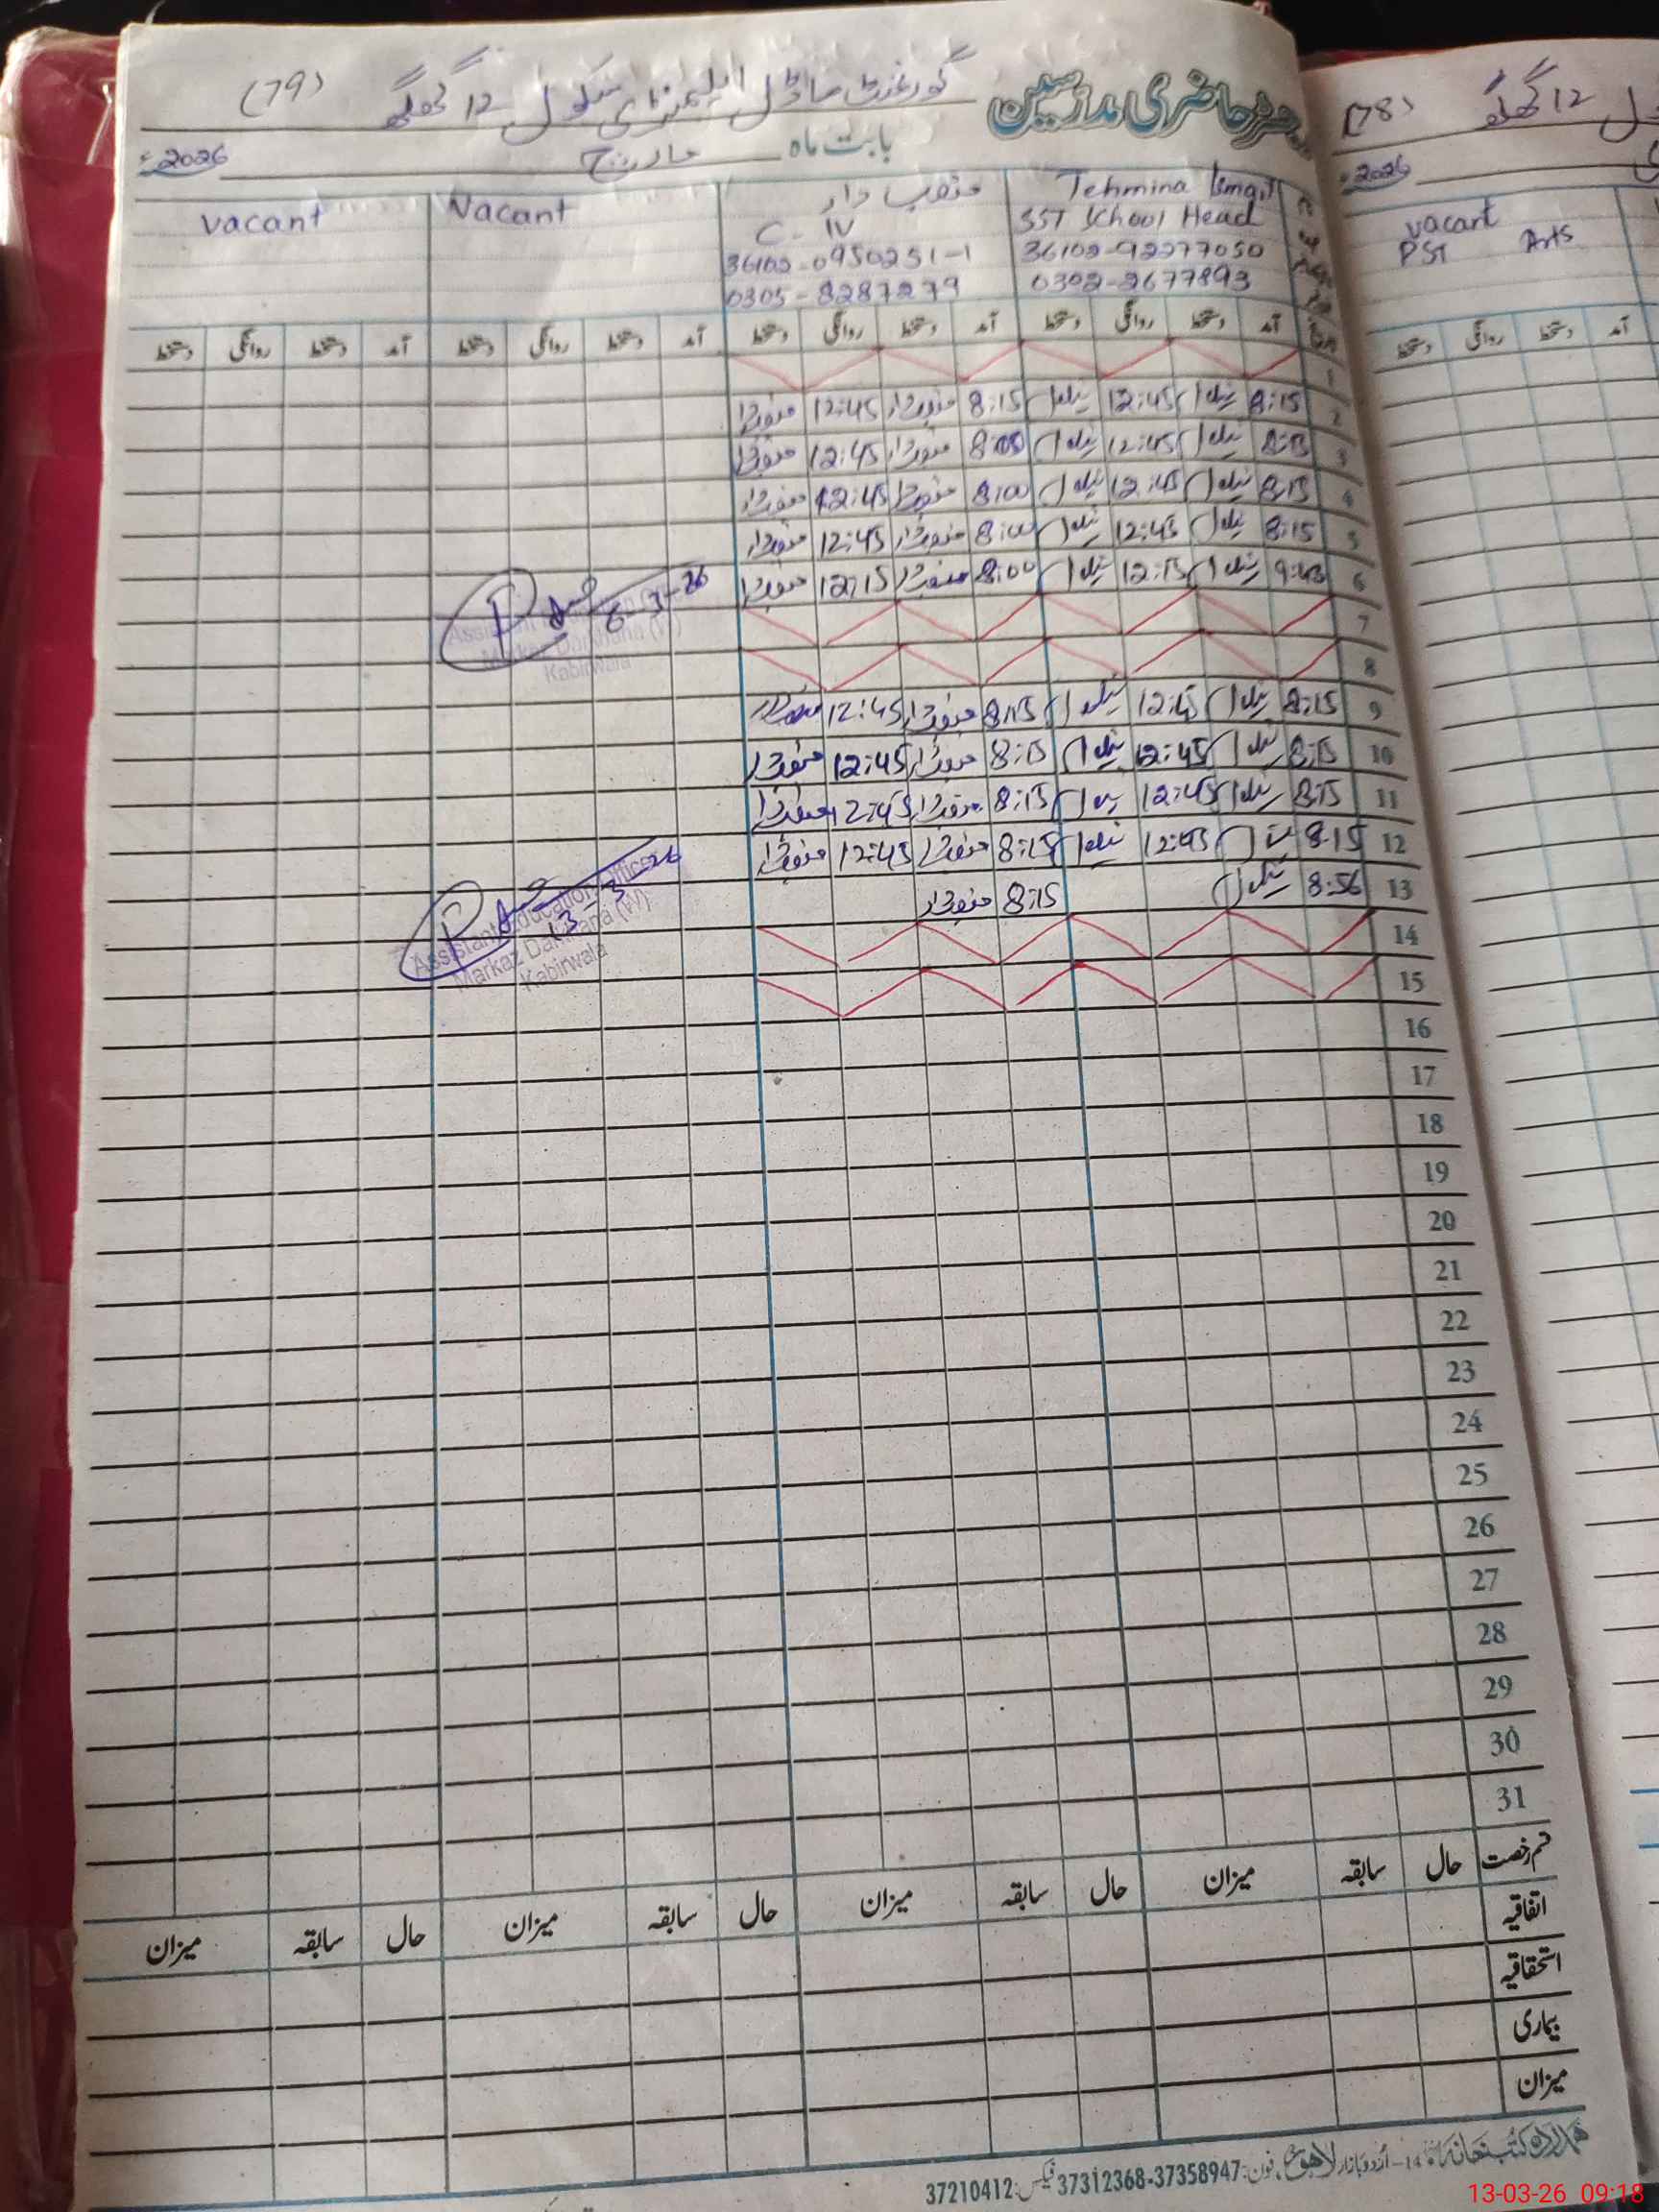 رجسٹر حاضری مدرسین گورنمنٹ ماڈل ایلیمنٹری سکول 12 گھگھ (79)
بابت ماہ مارچ 2026ء
Tehmina
SST School Head
36102-92277050
0302-2677893
منصب دار
C-IV
36102-0950251-1
0305-8287279
Vacant
Vacant
آمد دستخط روانگی دستخط آمد دستخط روانگی دستخط آمد دستخط روانگی دستخط آمد دستخط روانگی دستخط
1
2 8:15 12:45 8:15 منصب دار 12:45 منصب دار
3 8:15 12:45 8:05 منصب دار 12:45 منصب دار
4 8:15 12:45 8:00 منصب دار 12:45 منصب دار
5 8:15 12:45 8:00 منصب دار 12:45 منصب دار
6 9:43 12:15 8:00 منصب دار 12:15 منصب دار
6-3-26
Markaz Darkhana (W)
Kabirwala
7
8
9 8:15 12:45 8:15 منصب دار 12:45 منصب دار
10 8:15 12:45 8:15 منصب دار 12:45 منصب دار
11 8:15 12:45 8:15 منصب دار 12:45 منصب دار
12 8:15 12:45 8:15 منصب دار 12:45 منصب دار
13 8:56 8:15 منصب دار
13-3-26
Assistant Education Officer
Markaz Darkhana (W)
Kabirwala
14
15
16
17
18
19
20
21
22
23
24
25
26
27
28
29
30
31
قسم رخصت حال سابقہ میزان حال سابقہ میزان حال سابقہ میزان حال سابقہ میزان
اتفاقیہ
استحقاقیہ
بیماری
میزان
ہمدرد کتب خانہ 14-اُردو بازار لاہور فون: 37358947-37312368 فیکس: 37210412
(78) 12 گھگھ
2026ء
vacant
PST Arts
آمد دستخط روانگی دستخط
13-03-26 09:18